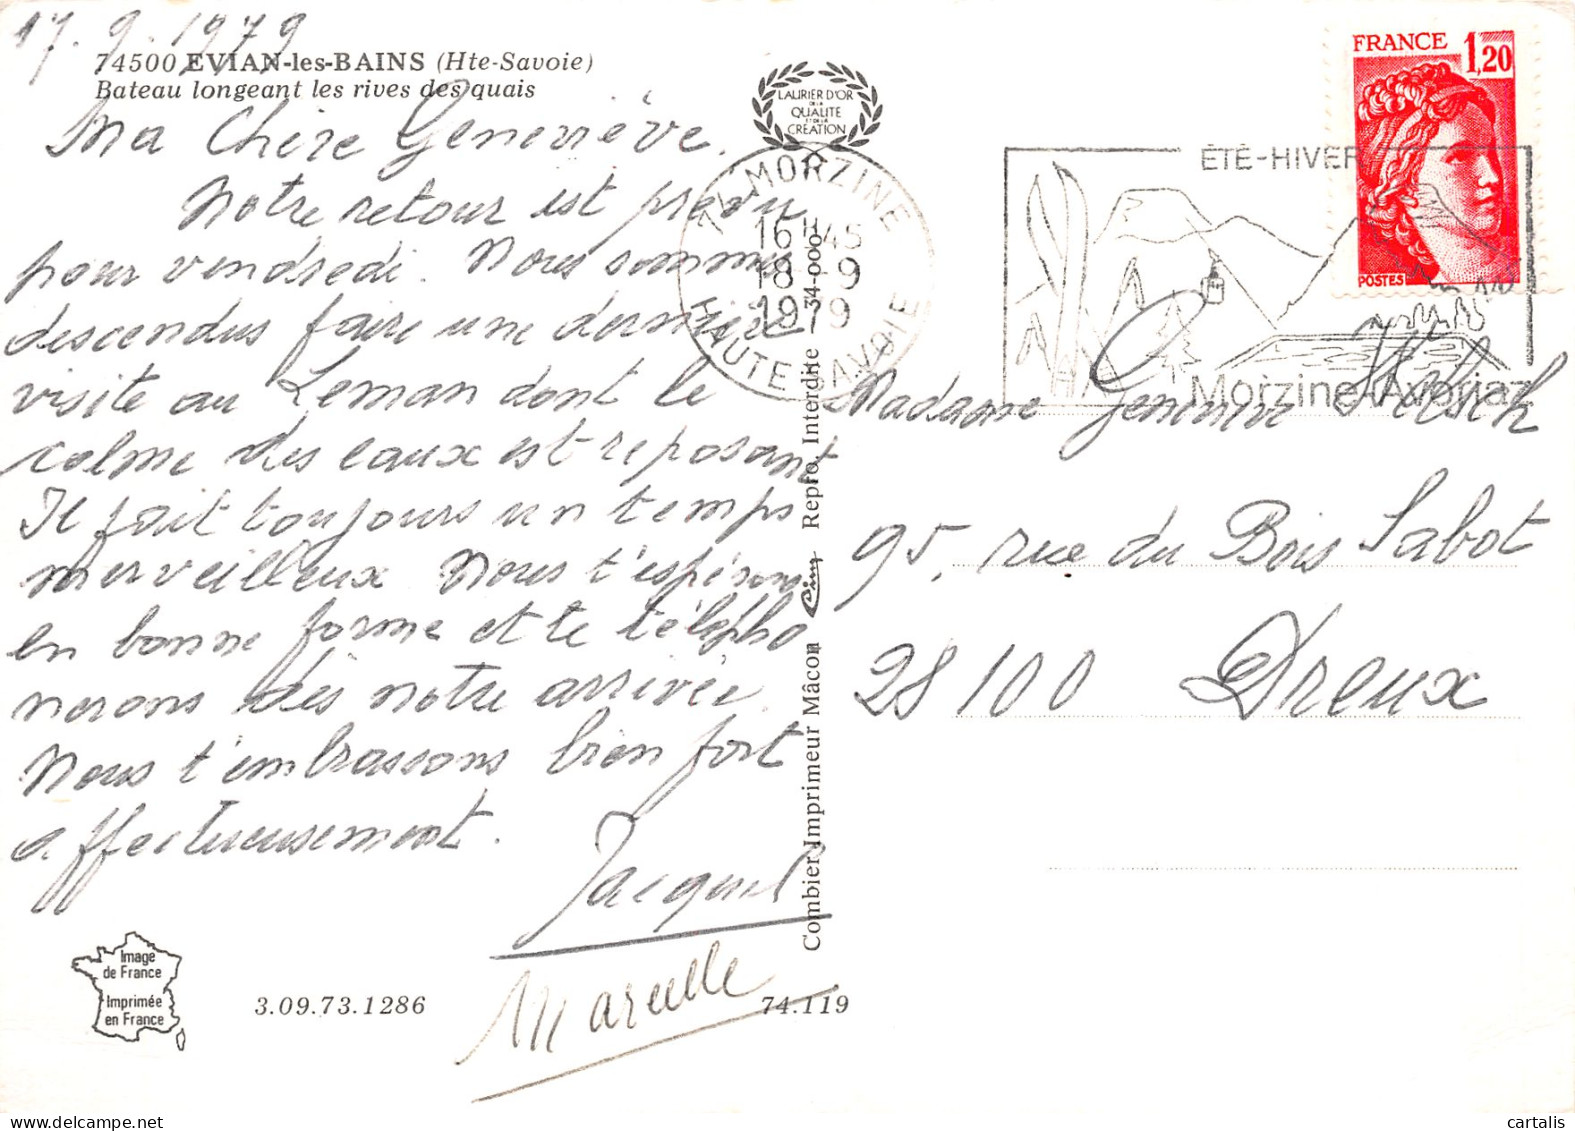 17.9.1979
74500 EVIAN-les-BAINS (Hte-Savoie)
Bateau longeant les rives des quais
Ma Chère Geneviève,
Notre retour est prévu
pour vendredi. Nous sommes
descendus faire une dernière
visite au Leman dont le
calme des eaux est reposant
Il fait toujours un temps
merveilleux Nous t'espérons
en bonne forme et te télépho
nerons dès notre arrivée.
Nous t'embrassons bien fort
affectueusement.
Jacques
Marcelle
Image
de France
Imprimée
en France
3.09.73.1286
74.119
LAURIER D'OR
DE LA
QUALITE
ET DE LA
CREATION
Combier Imprimeur Mâcon
Cim
Repro. Interdite
34-000
74 MORZINE
16H45
18-9
1979
HAUTE-SAVOIE
ÉTÉ-HIVER
Morzine-Avoriaz
FRANCE 1,20
POSTES
Madame
95, rue du Bois Sabot
28100 Dreux